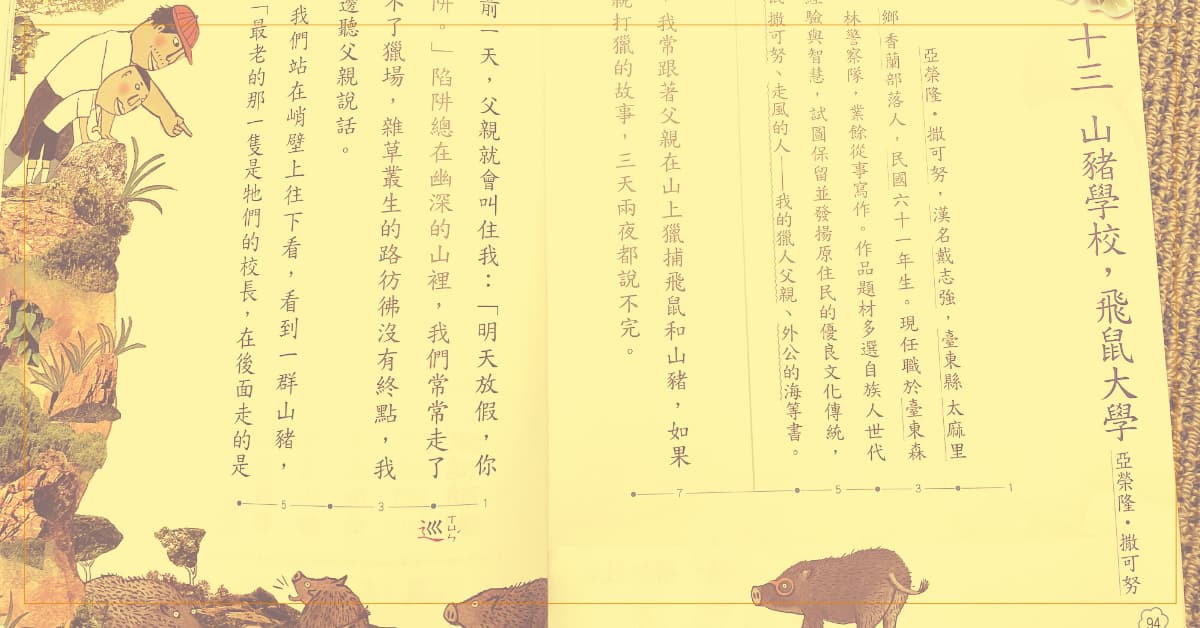 十三 山豬學校，飛鼠大學 亞榮隆・撒可努
亞榮隆・撒可努，漢名戴志強，臺東縣太麻里
鄉香蘭部落人，民國六十一年生。現任職於臺東森
林警察隊，業餘從事寫作。作品題材多選自族人世代
經驗與智慧，試圖保留並發揚原住民的優良文化傳統，
撒可努、走風的人——我的獵人父親、外公的海等書。
，我常跟著父親在山上獵捕飛鼠和山豬，如果
親打獵的故事，三天兩夜都說不完。
1 3 5 7
94
前一天，父親就會叫住我：「明天放假，你
阱。」陷阱總在幽深的山裡，我們常常走了
不了獵場，雜草叢生的路彷彿沒有終點，我
邊聽父親說話。
我們站在峭壁上往下看，看到一群山豬，
「最老的那一隻是牠們的校長，在後面走的是
1 3 5
巡 ㄒㄩㄣˊ